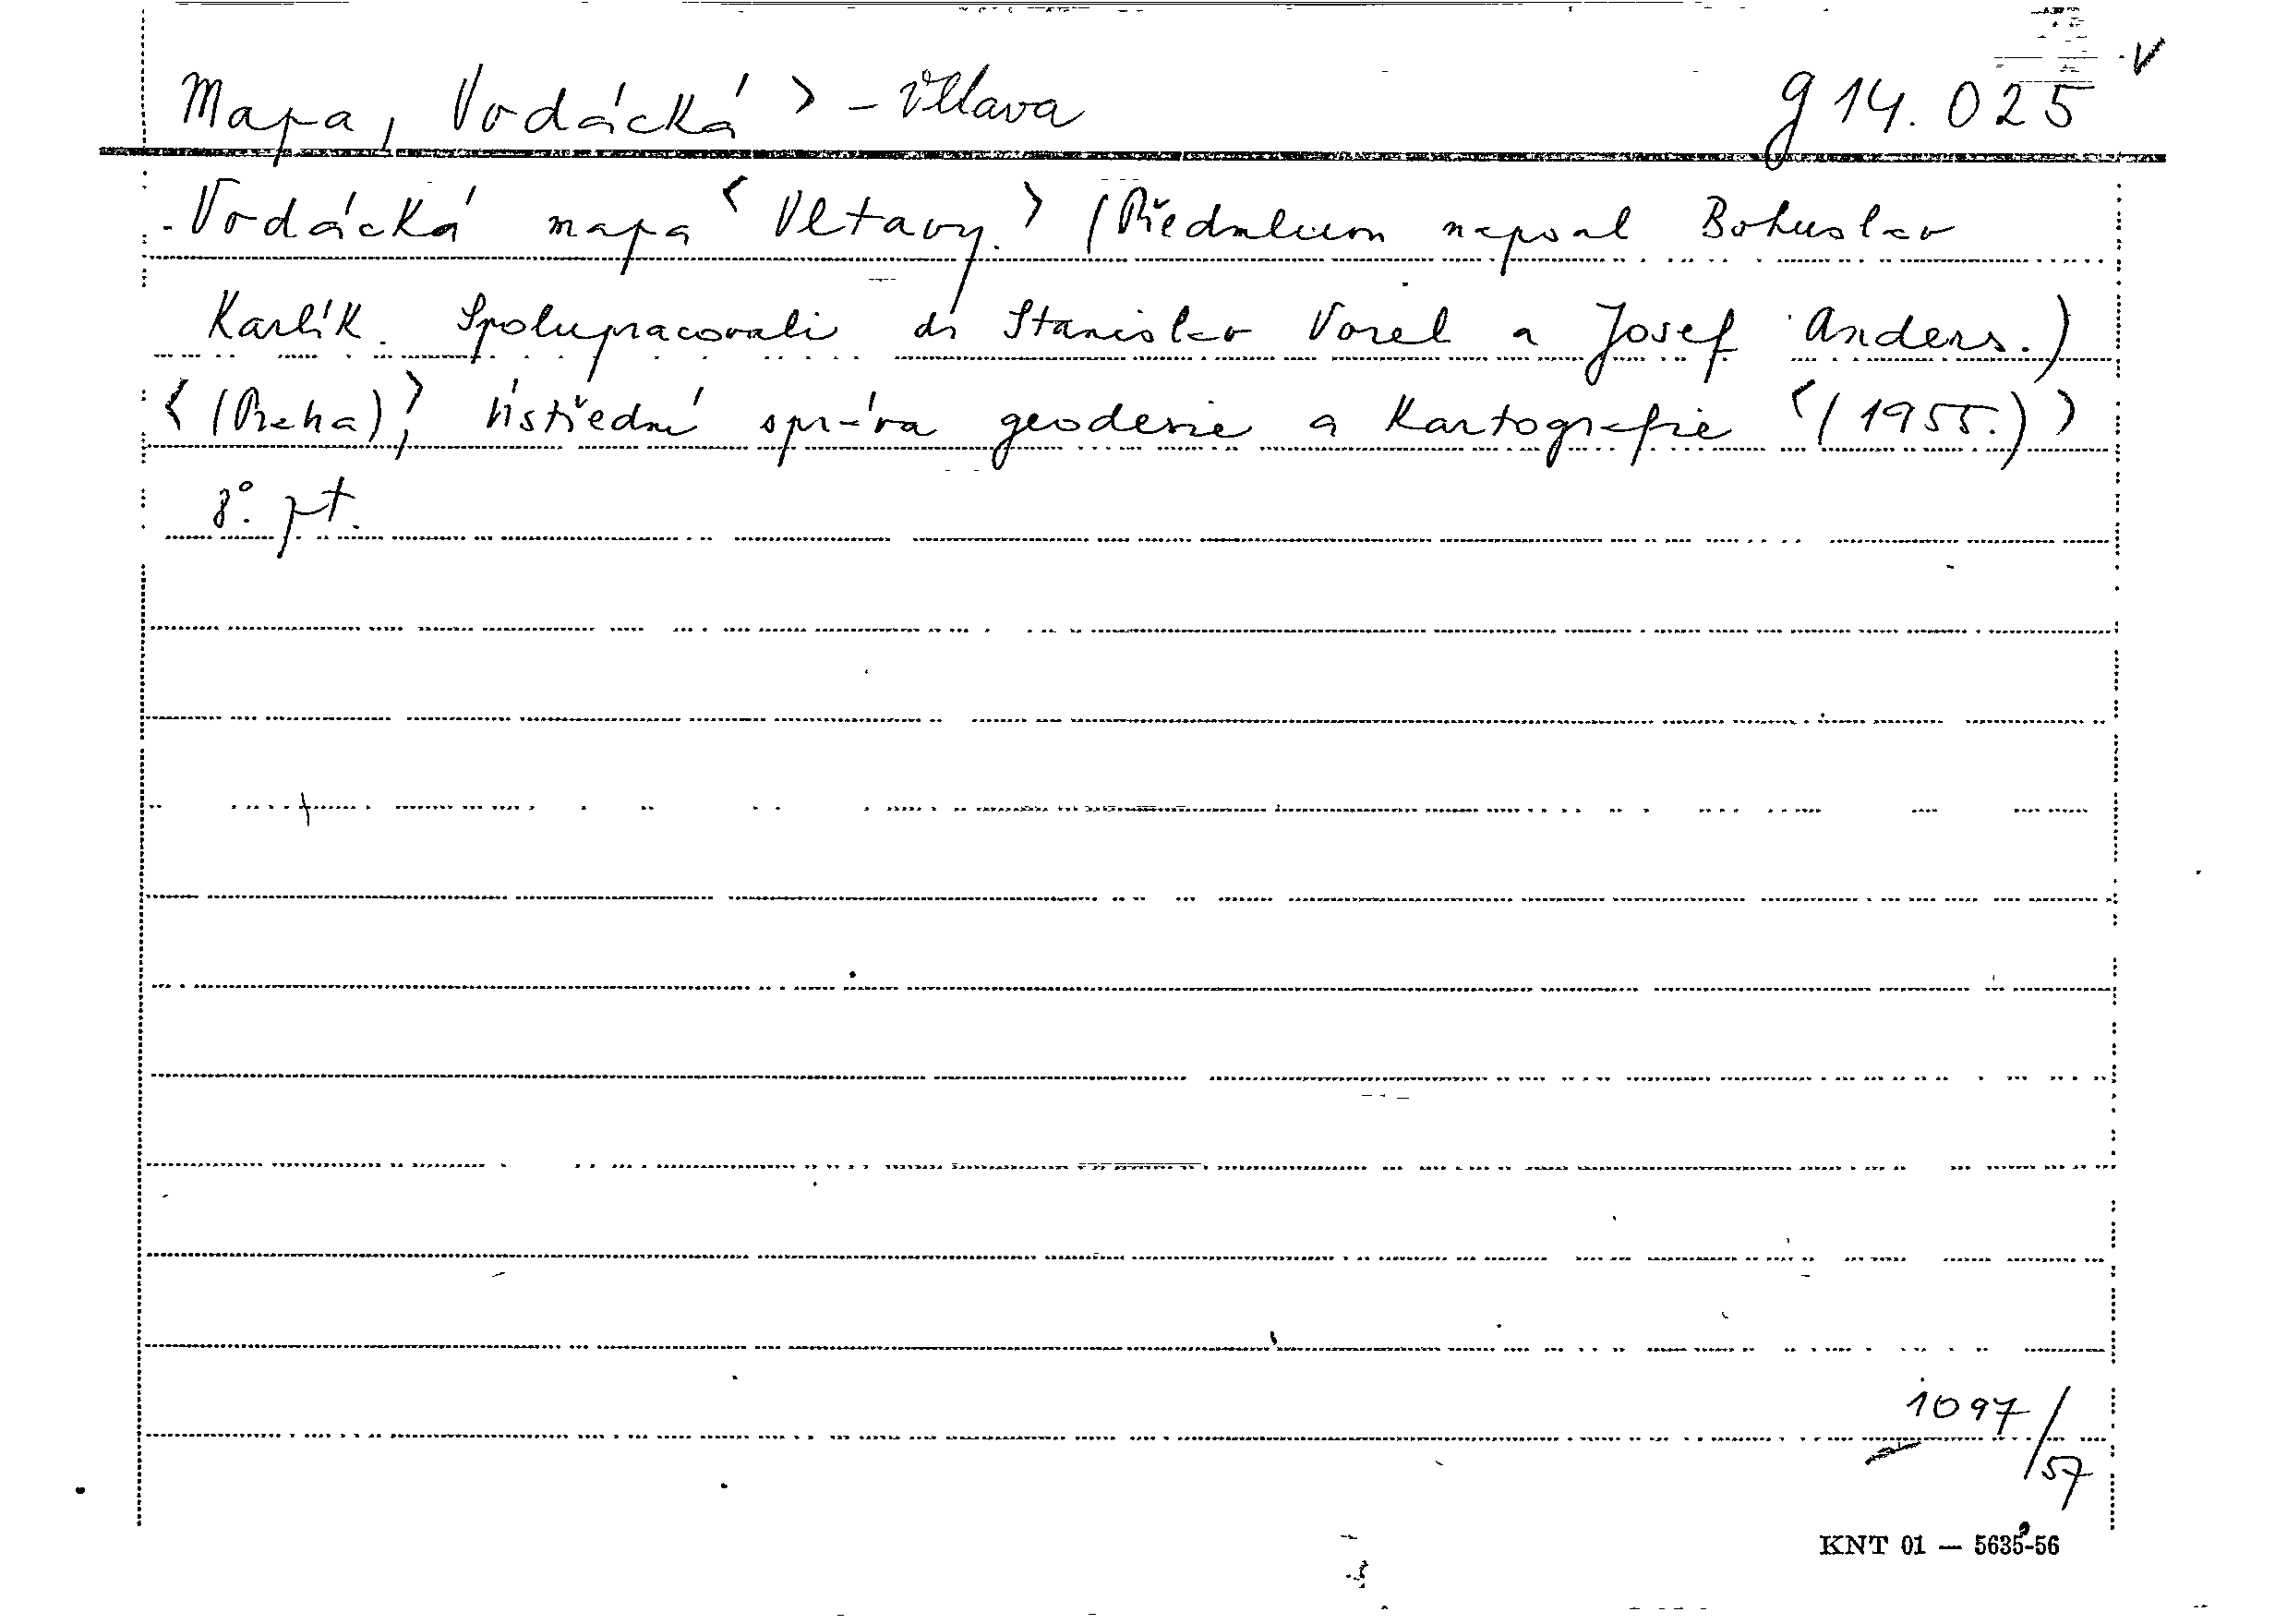 Mapa, Vodácká > - Vltava g 14.025 V
Vodácká mapa < Vltavy. > (Předmluvu napsal Bohuslav
Karlík. Spolupracovali dr Stanislav Vorel a Josef Anders.)
< (Praha), > Ústřední správa geodesie a kartografie < (1955.) >
8°. pt.
1097/57
KNT 01 — 5635-56